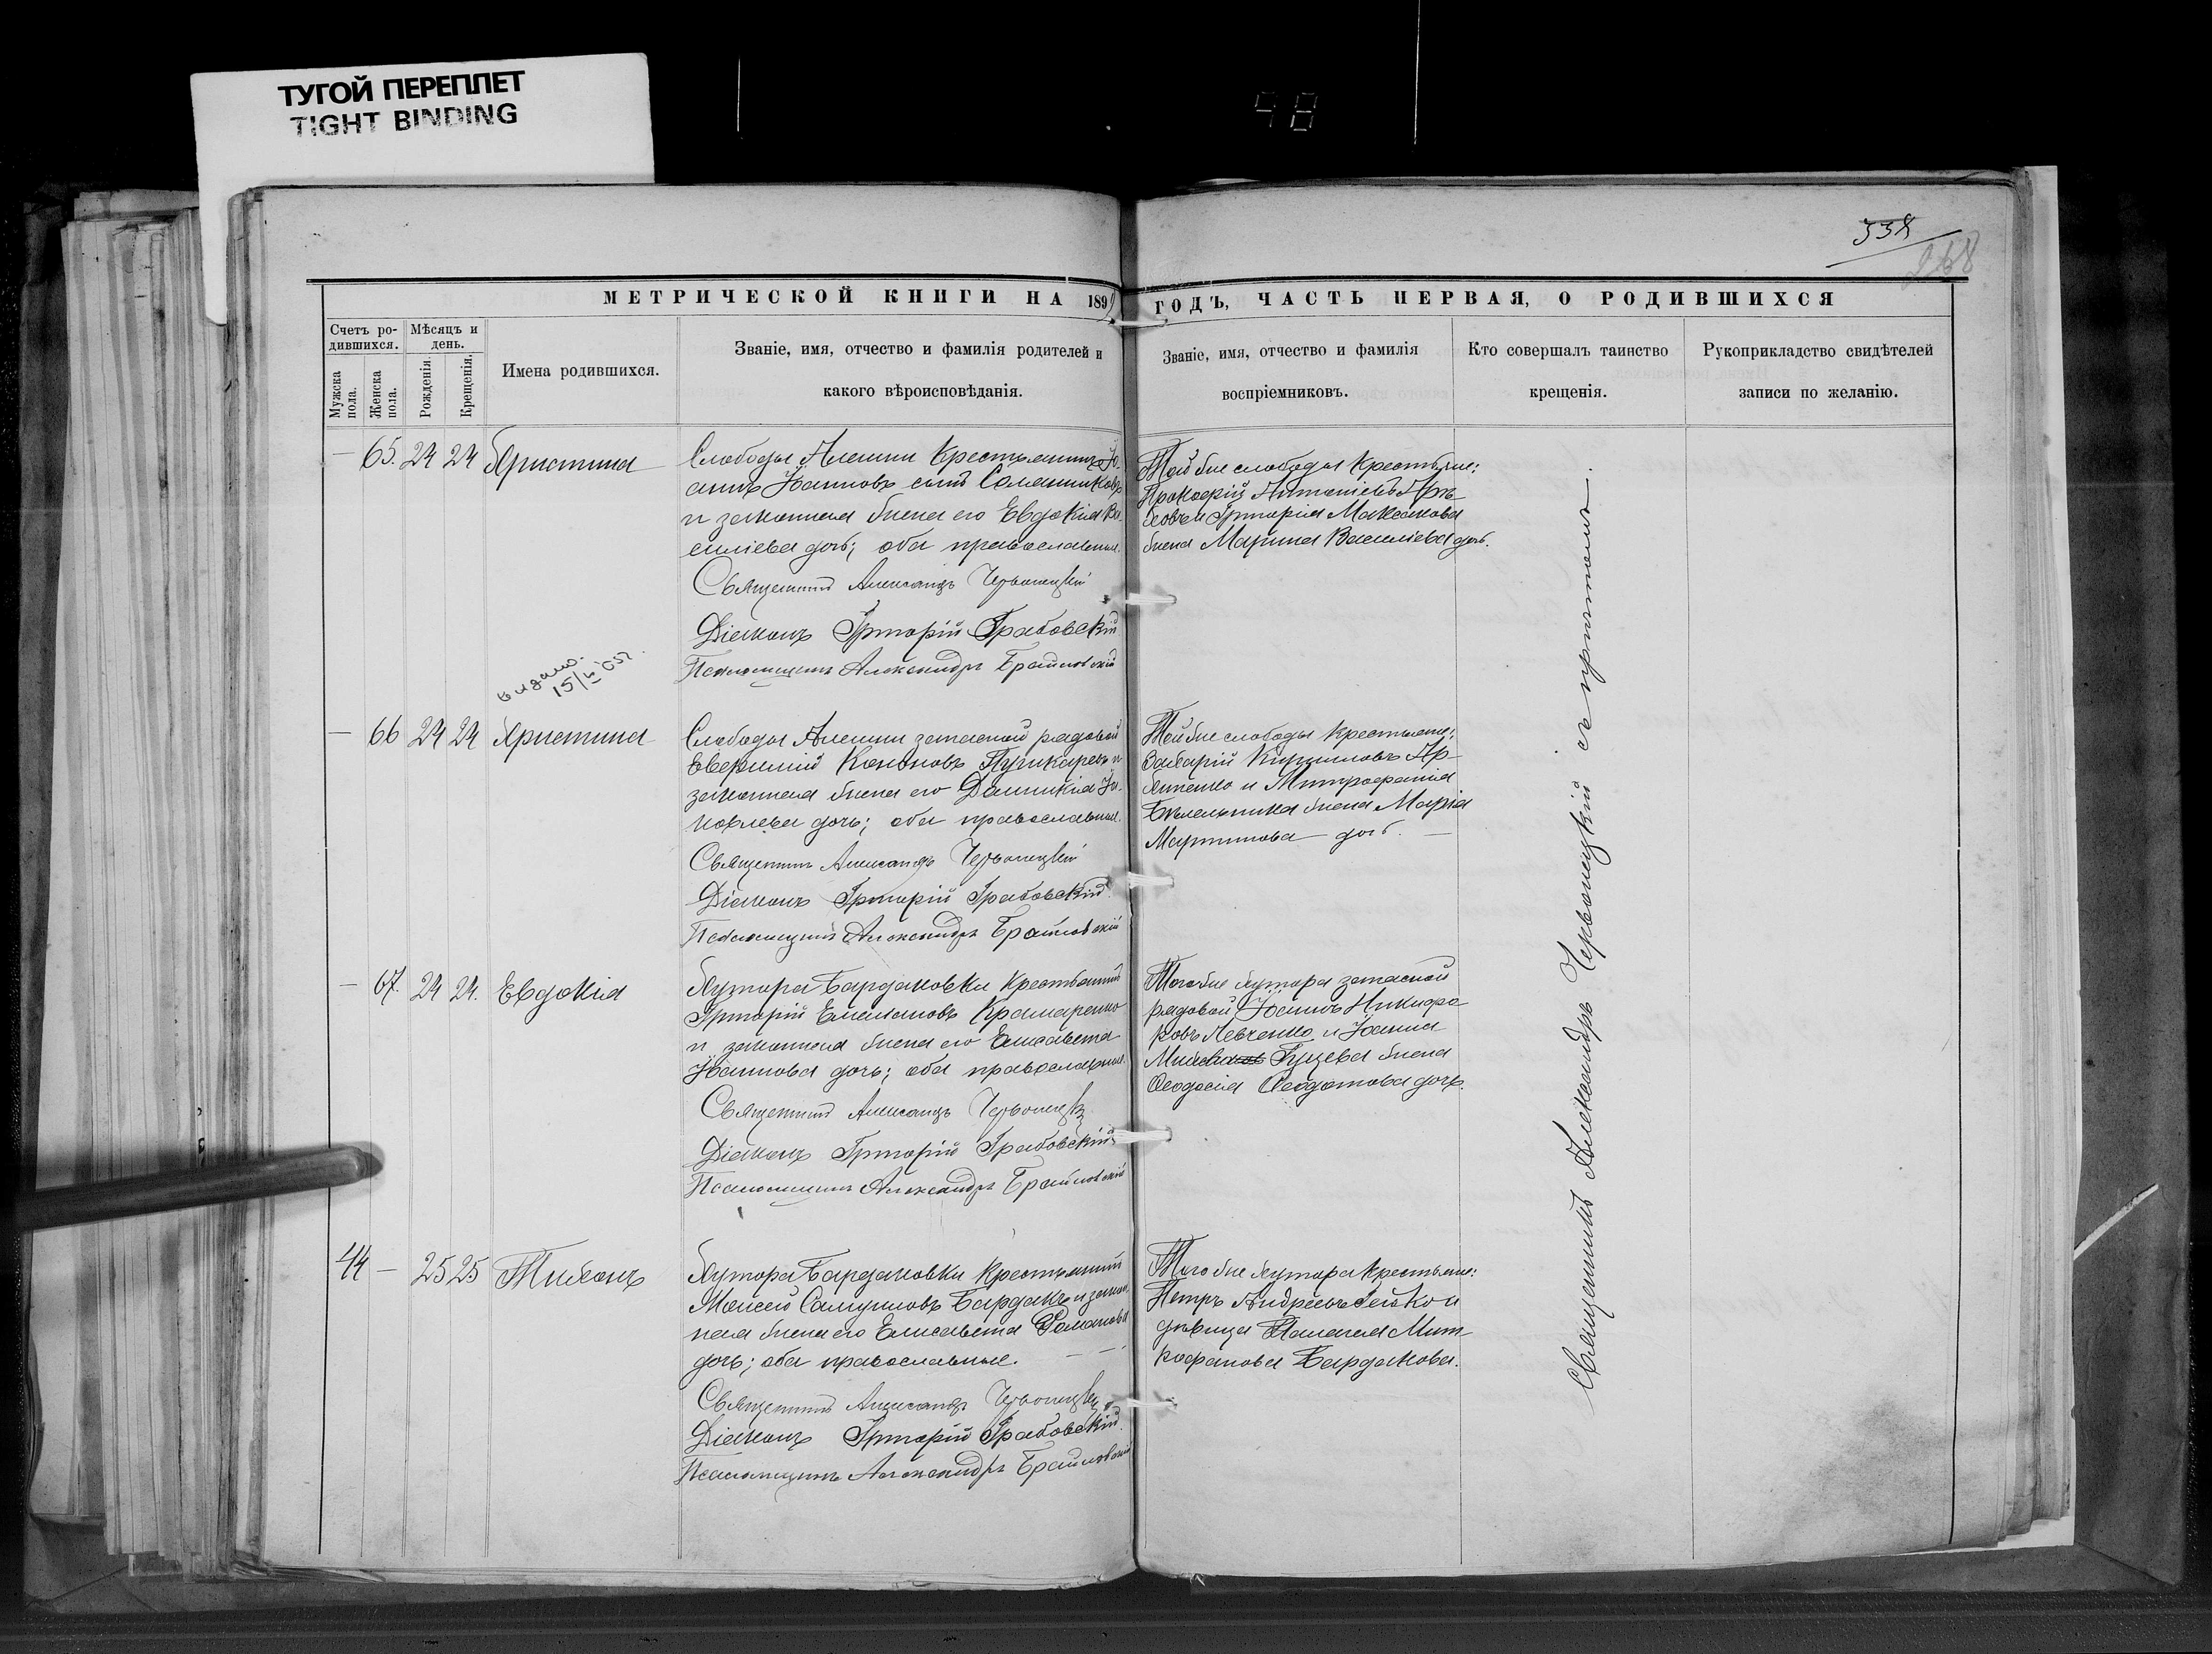 ТУГОЙ ПЕРЕПЛЕТ
TIGHT BINDING
48
338
МЕТРИЧЕСКОЙ КНИГИ НА 189 ГОДЪ, ЧАСТЬ ПЕРВАЯ, О РОДИВШИХСЯ
Счетъ ро-
дившихся.
Мужска
пола.
Женска
пола.
Мѣсяцъ и
день.
Рожденія.
Крещенія.
Имена родившихся.
Званіе, имя, отчество и фамилія родителей и
какого вѣроисповѣданія.
Званіе, имя, отчество и фамилія
воспріемниковъ.
Кто совершалъ таинство
крещенія.
Рукоприкладство свидѣтелей
записи по желанію.
— 65. 24 24 Христина
Слободы Алешки крестьянинъ Іо-
аннъ Іоанновъ сынъ
и законная жена его Евдокія Ва-
силіева дочь; оба православные.
Священникъ Александръ Червонецкій
Діаконъ Григорій Грабовскій
Псаломщикъ Александръ Браиловскій
Той же слободы крестьяне:
Прокофій
и Григорія
жена Марина Василіева дочь.
выдано.
15/
— 66 24 24 Христина
Слободы Алешки запасной рядовой
Евфимій Кононовъ Пушкаревъ и
законная жена его Домникія Іа-
ковлева дочь; оба православные.
Священникъ Александръ Червонецкій
Діаконъ Григорій Грабовскій
Псаломщикъ Александръ Браиловскій
Той же слободы крестьяне:
Захарій Кирилловъ
и Митрофанія
жена Марія
Мартинова дочь. —
— 67. 24 24. Евдокія
Хутора Бардаковки крестьянинъ
Григорій Емеліановъ Крамаренко
и законная жена его Елисавета
Іоаннова дочь; оба православные.
Священникъ Александръ Червонецкій
Діаконъ Григорій Грабовскій
Псаломщикъ Александръ Браиловскій
Того же хутора запасной
рядовой Іоаннъ Никифо-
ровъ Левченко и Іоанна
Гуцева жена
Ѳеодосія Ѳеодотова дочь.
44 — 25 25 Тихонъ
Хутора Бардаковки крестьянинъ
Моисей Самуиловъ Бардакъ и закон-
ная жена его Елисавета Романова
дочь; оба православные. — —
Священникъ Александръ Червонецкій
Діаконъ Григорій Грабовскій
Псаломщикъ Александръ Браиловскій
Того же хутора крестьяне:
Петръ Андреевъ и
дѣвица Пелагея Мит-
рофанова Бардакова.
Священникъ Александръ Червонецкій съ причтомъ.